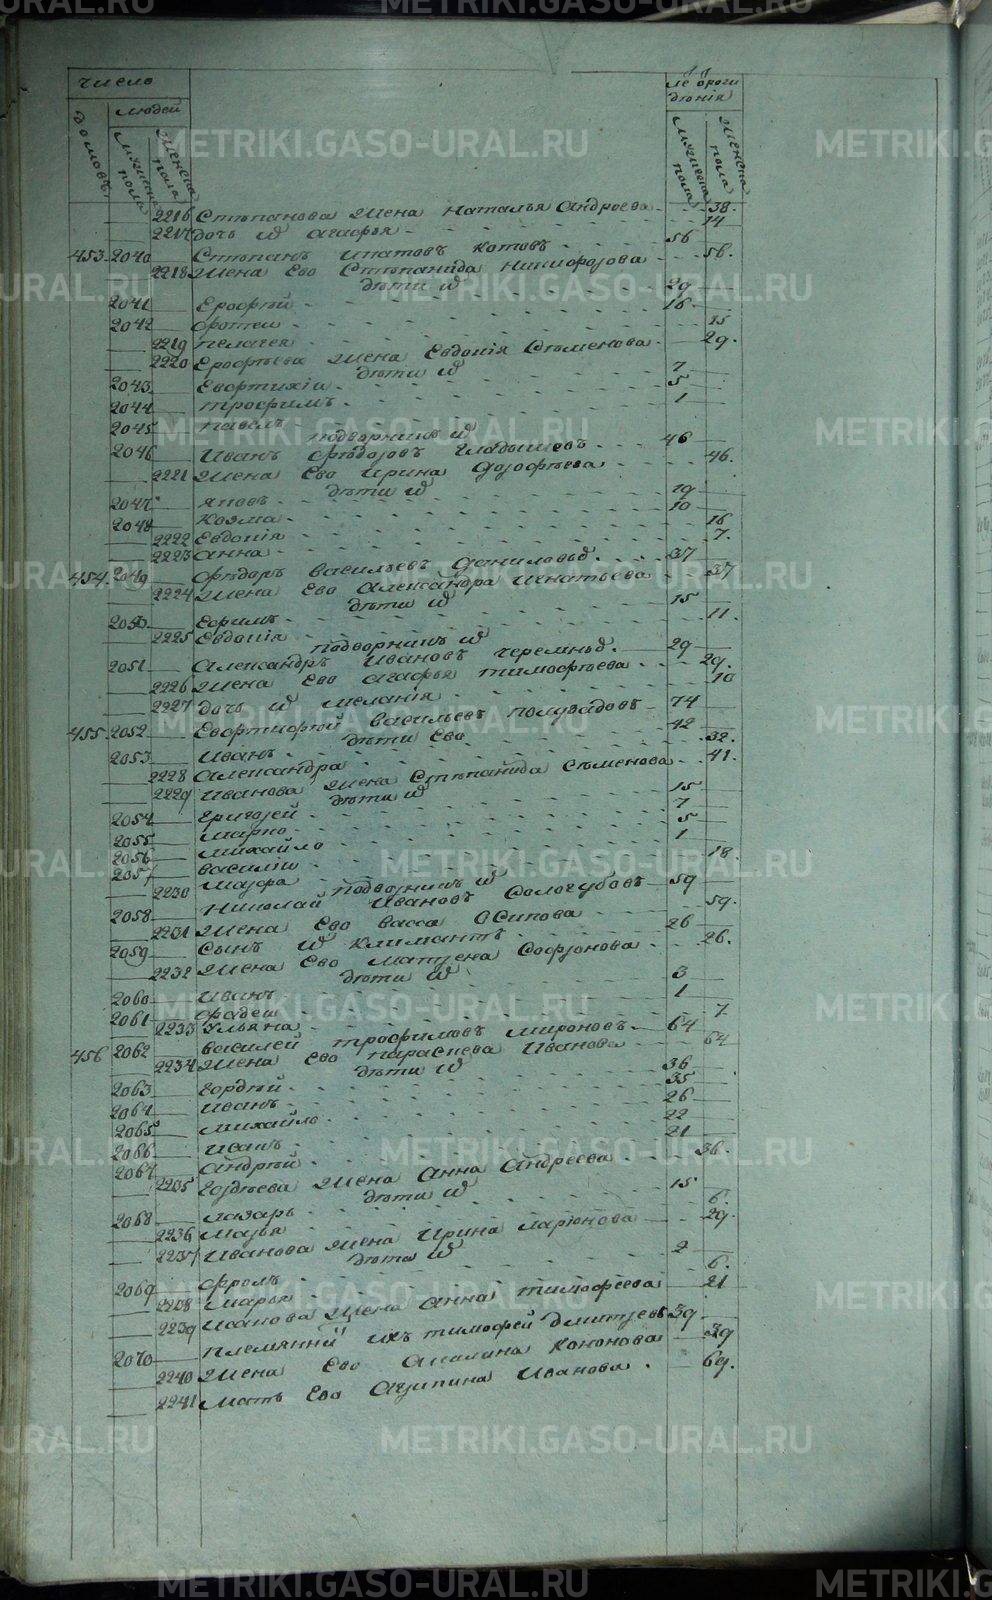 METRIKI.GASO-URAL.RU
Число
людей
домовъ
мужеска пола
женска пола
лѣ ѳроги
дѣнія
мужеска пола
женска пола
2216 Стѣпанова жена наталья андреева 38.
2217 дочь и агафья 14
453. 2040 Стѣпанъ ипатовъ котовъ 56
2218 жена Ево Стѣпанида никифорова 56.
дѣти и
2041 Ерофѣй 29
2042 фотеи 16
2219 пелагея 15
2220 Ерофѣева жена Евдокія Сѣменова 29.
дѣти и
2043 Евфтихіи 7
2044 трофимъ 5
2045 павелъ 1
подворникъ и
2046 Иванъ фѣдоровъ гладышевъ 46
2221 жена Ево ирина дорофѣева 46.
дѣти и
2047 яковъ 19
2048 Козма 10
2222 Евдокія 16
2223 анна 7.
454. 2049 фѣдоръ васильевъ даниловыд. 37
2224 жена Ево александра игнатьева 37
дѣти и
2050 Ефимъ 15
2225 Евдокія 11.
подворникъ и
2051 александръ ивановъ черемныд. 29
2226 жена Ево агафья тимофѣева 29.
2227 дочь и меланія 10
455. 2052 Евфтифей васильевъ полузадовъ 74
дѣти Ево
2053 иванъ 42
2228 александра 32.
2229 иванова жена Стѣпанида Сѣменова 41.
дѣти и
2054 григорей 15
2055 марко 7
2056 михайло 5
2057 василіи 1
2230 марфа 18.
подворникъ и
2058 николай ивановъ Сологубовъ 59
2231 жена Ево васса Осипова 59.
2059 Сынъ и климантъ 26
2232 жена Ево матрена Софронова 26.
дѣти и
2060 иванъ 3
2061 фадеи 1
2233 Ульяна 7.
456 2062 василей трофимовъ мироновъ 64
2234 жена Ево параскева иванова 64
дѣти и
2063 гордѣй 36
2064 иванъ 35
2065 михайло 26
2066 иванъ 22
2067 андрѣй 21
2235 гордѣева жена анна андреева 36.
дѣти и
2068 лазарь 15
2236 марья 6.
2237 иванова жена ирина ларионова 29.
дѣти и
2069 фролъ 2
2238 марья 6.
2239 иванова жена анна тимофеева 21
2070 племянни ихъ тимофей дмитревъ 39
2240 жена Ево акилина кононова 39
2241 мать Ево агрипина иванова. 69.